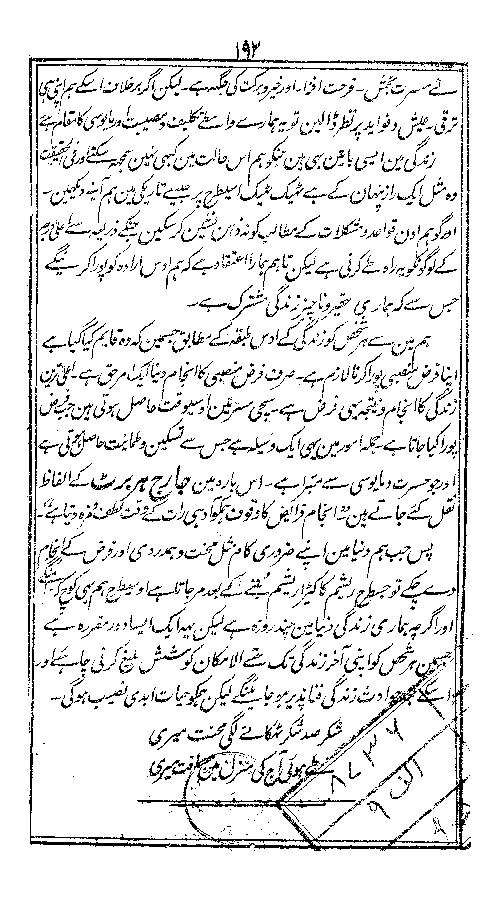 ۱۹۲
لئے مسرت بخش۔ فرحت افزا۔ اور خیر و برکت کی جگہ ہے۔ لیکن اگر برخلاف اسکے ہم اپنی ہی
ترقی۔ عیش و فواید پر نظر ڈالین تو یہ ہمارے واسطے تکلیف و مصیبت اور مایوسی کا مقام ہے
زندگی مین ایسی باتین بھی ہین جنکو ہم اس حالت مین کبھی نہین سمجھ سکتے اور فی الحقیقت
وہ مثل ایک راز پنہان کے ہے ٹھیک ٹھیک اسیطرح پر جیسے تاریکی مین ہم آئینہ دیکھین۔
اور گو ہم اون قواعد و مشکلات کے مطالب کو نہ ذہن نشین کر سکین جنکے ذریعہ سے اعلیٰ درجہ
کے لوگونکو یہ راہ طے کرنی ہے لیکن تاہم ہمارا اعتقاد ہے کہ ہم اوس ارادہ کو پورا کرینگے
جس سے کہ ہماری حقیر و ناچیز زندگی مشترک ہے۔
ہم مین سے ہر شخص کو زندگی کے اوس طبقہ کے مطابق جسمین کہ وہ قایم کیا گیا ہے
اپنا فرض منصبی پورا کرنا لازم ہے۔ صرف فرض منصبی کا انجام دینا ایک امر حق ہے۔ اعلیٰ ترین
زندگی کا انجام و نتیجہ یہی فرض ہے۔ سچی مسرتین اوسیوقت حاصل ہوتی ہین جب فرض
پورا کیا جاتا ہے۔ جملہ امور مین یہی ایک وسیلہ ہے جس سے تسکین و طمانیت حاصل ہوتی ہے
اور جو حسرت و مایوسی سے مبرا ہے۔ اس بارہ مین جارج ہربرٹ کے الفاظ
نقل کئے جاتے ہین انجام فرائض کا وقوف ہمکو آدھی رات کے وقت لطف و مزہ دیتا ہے۔
پس جب ہم دنیا مین اپنے ضروری کام مثل محنت و ہمدردی اور فرض کے انجام
دے چکے تو جسطرح ریشم کا کیڑا ریشم بُننے کے بعد مر جاتا ہے اوسیطرح ہم بھی کوچ کرینگے
اور اگرچہ ہماری زندگی دنیا مین چند روزہ ہے لیکن یہہ ایک ایسا دور مقررہ ہے
جسمین ہر شخص کو اپنی آخر زندگی تک حتے الامکان کوشش بلیغ کرنی چاہئے اور
اسکے بعد حوادث زندگی فنا پذیر ہو جائینگے لیکن ہمکو حیات ابدی نصیب ہوگی۔
شکر صد شکر ٹھکانے لگی محنت میری
طے ہوئی آج کی منزل مین مسافت میری
۸۷۳۶
الف ۹